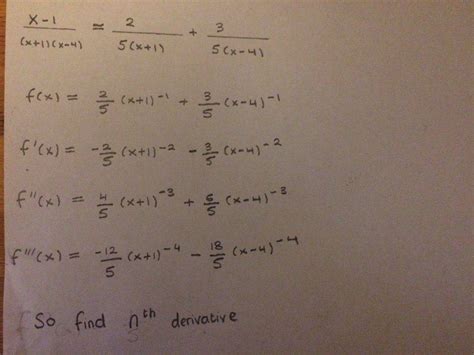 x-1/(x+1)(x-4) = 2/5(x+1) + 3/5(x-4)
f(x) = 2/5 (x+1)^-1 + 3/5 (x-4)^-1
f'(x) = -2/5 (x+1)^-2 - 3/5 (x-4)^-2
f''(x) = 4/5 (x+1)^-3 + 6/5 (x-4)^-3
f'''(x) = -12/5 (x+1)^-4 - 18/5 (x-4)^-4
So find n^th derivative